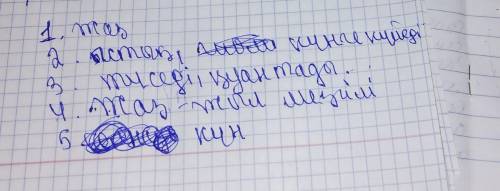 1. жаз
2. ыстық, күнге күйеді
3. піседі, қуантады.
4. жаз - жыл мезгілі
5. күн